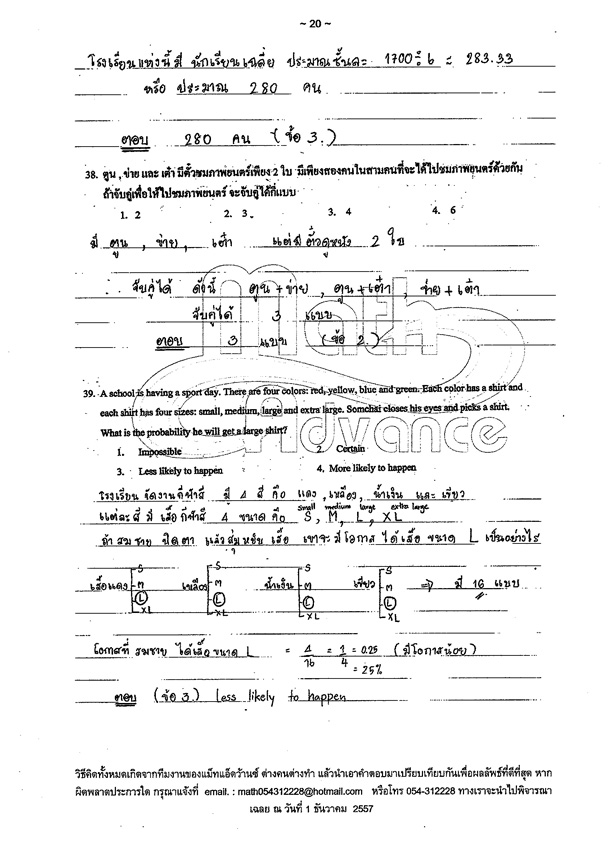 ~ 20 ~
โรงเรียนแห่งนี้มี นักเรียนเฉลี่ย ประมาณชั้นละ 1700 ÷ 6 = 283.33
หรือ ประมาณ 280 คน
ตอบ 280 คน (ข้อ 3.)
38. ตูน , ข่าย และ เต๋า มีตั๋วชมภาพยนตร์เพียง 2 ใบ มีเพียงสองคนในสามคนที่จะได้ไปชมภาพยนตร์ด้วยกัน
ถ้าจับคู่เพื่อให้ไปชมภาพยนตร์ จะจับคู่ได้กี่แบบ
1. 2 2. 3 3. 4 4. 6
มี ตูน , ข่าย , เต๋า แต่มีตั๋วดูหนัง 2 ใบ
จับคู่ได้ ดังนี้ ตูน + ข่าย , ตูน + เต๋า , ข่าย + เต๋า
จับคู่ได้ 3 แบบ
ตอบ 3 แบบ (ข้อ 2.)
39. A school is having a sport day. There are four colors: red, yellow, blue and green. Each color has a shirt and
each shirt has four sizes: small, medium, large and extra large. Somchai closes his eyes and picks a shirt.
What is the probability he will get a large shirt?
1. Impossible 2. Certain
3. Less likely to happen 4. More likely to happen
โรงเรียน จัดงานกีฬาสี มี 4 สี คือ แดง , เหลือง , น้ำเงิน และ เขียว
แต่ละสี มี เสื้อกีฬาสี 4 ขนาด คือ S, M, L, XL
small medium large extra large
ถ้า สมชาย ปิดตา แล้วสุ่มหยิบ เสื้อ เขาจะมีโอกาส ได้เสื้อ ขนาด L เป็นอย่างไร
เสื้อแดง S M L XL เหลือง S M L XL น้ำเงิน S M L XL เขียว S M L XL ⇒ มี 16 แบบ
โอกาสที่ สมชาย ได้เสื้อขนาด L = 4/16 = 1/4 = 0.25 (มีโอกาสน้อย)
= 25%
ตอบ (ข้อ 3.) Less likely to happen
math
advance
วิธีคิดทั้งหมดเกิดจากทีมงานของแม็ทแอ็ดว้านซ์ ต่างคนต่างทำ แล้วนำเอาคำตอบมาเปรียบเทียบกันเพื่อผลลัพธ์ที่ดีที่สุด หาก
ผิดพลาดประการใด กรุณาแจ้งที่ email. : math054312228@hotmail.com หรือโทร 054-312228 ทางเราจะนำไปพิจารณา
เฉลย ณ วันที่ 1 ธันวาคม 2557